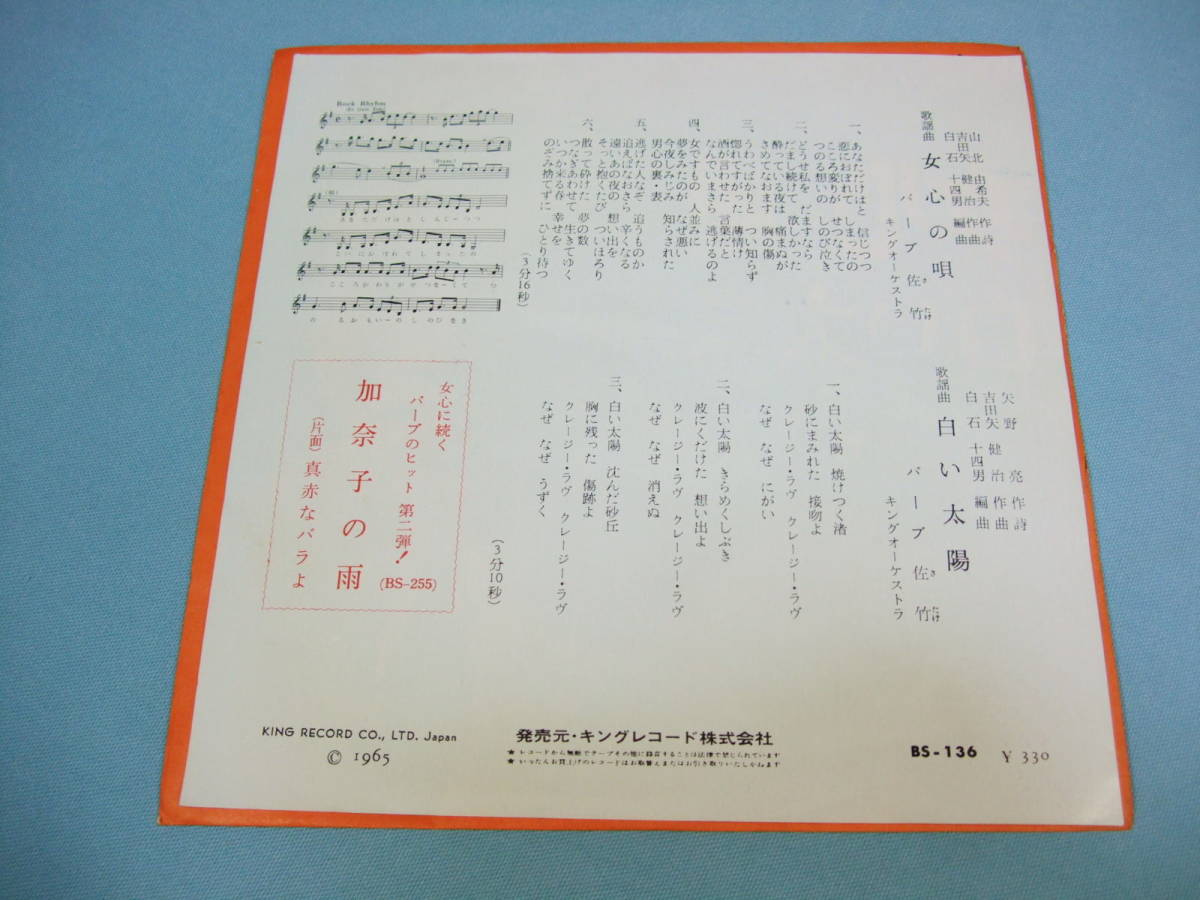 歌謡曲 女心の唄
山北由希夫 作詩
吉田矢健治 作曲
白石十四男 編曲
バーブ佐竹
さ たけ
キングオーケストラ
一、あなただけはと 信じつつ
恋におぼれて しまったの
こころ変りが せつなくて
つのる想いの しのび泣き
二、どうせ私を だますなら
だまし続けて 欲しかった
酔っている夜は 痛まぬが
さめてなおます 胸の傷
三、うわべばかりと つい知らず
惚れてすがった 薄情け
酒が言わせた 言葉だと
なんでいまさら 逃げるのよ
四、女ですもの 人並みに
夢をみたのが なぜ悪い
今夜しみじみ 知らされた
男心の裏・表
五、逃げた人なぞ 追うものか
追えばなおさら 辛くなる
遠いあの夜の 想い出を
そっと抱くたび ついほろり
六、散って砕けた 夢の数
つなぎあわせて 生きてゆく
いつか来る春 幸せを
のぞみ捨てずに ひとり待つ
(3分16秒)
Rock Rhythm
歌謡曲 白い太陽
矢野亮 作詩
吉田矢健治 作曲
白石十四男 編曲
バーブ佐竹
さ たけ
キングオーケストラ
一、白い太陽 焼けつく渚
砂にまみれた 接吻よ
クレージー・ラヴ クレージー・ラヴ
なぜ なぜ にがい
二、白い太陽 きらめくしぶき
波にくだけた 想い出よ
クレージー・ラヴ クレージー・ラヴ
なぜ なぜ 消えぬ
三、白い太陽 沈んだ砂丘
胸に残った 傷跡よ
クレージー・ラヴ クレージー・ラヴ
なぜ なぜ うずく
(3分10秒)
女心に続く
バーブのヒット 第二弾!
(BS-255)
加奈子の雨
(片面) 真赤なバラよ
KING RECORD CO., LTD. Japan
© 1965
発売元・キングレコード株式会社
★レコードから無断でテープその他に録音することは法律で禁じられています
★いったんお買上げのレコードはお取替えまたはお引き取りいたしかねます
BS-136 ¥ 330